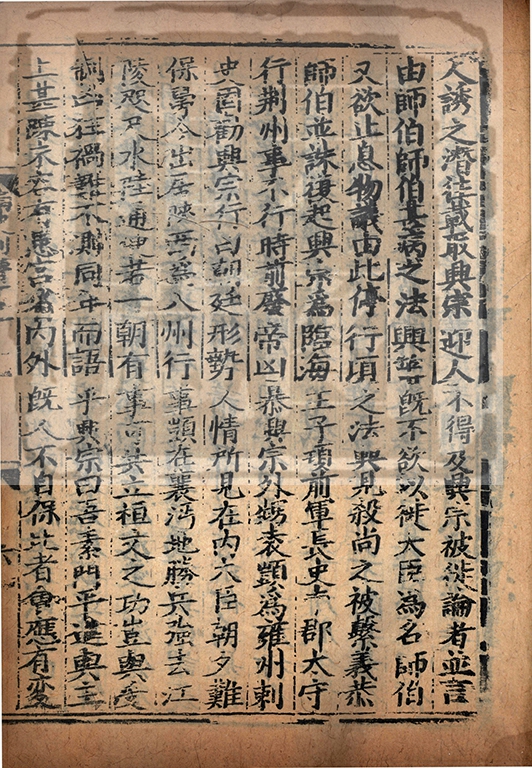 人誘之潛往載取興宗迎人不得及興宗被徙論者並言
由師伯師伯甚病之法興等既不欲以徙大臣為名師伯
又欲止息物議由此停行頃之法興見殺尚之被繫義恭
師伯並誅復起興宗為臨海王子頊前軍長史南郡太守
行荆州事不行時前廢帝凶恭興宗外甥袁顗為雍州刺
史固勸興宗行曰朝廷形勢人情所見在內大臣朝夕難
保舅今出居陝西為八州行事顗在襄沔地勝兵强去江
陵咫尺水陸通便若一朝有事可共立桓文之功豈與受
制凶狂禍難不測同年而語乎興宗曰吾素門平進與主
上甚踈未容有患宮省內外既人不自保比者會應有変